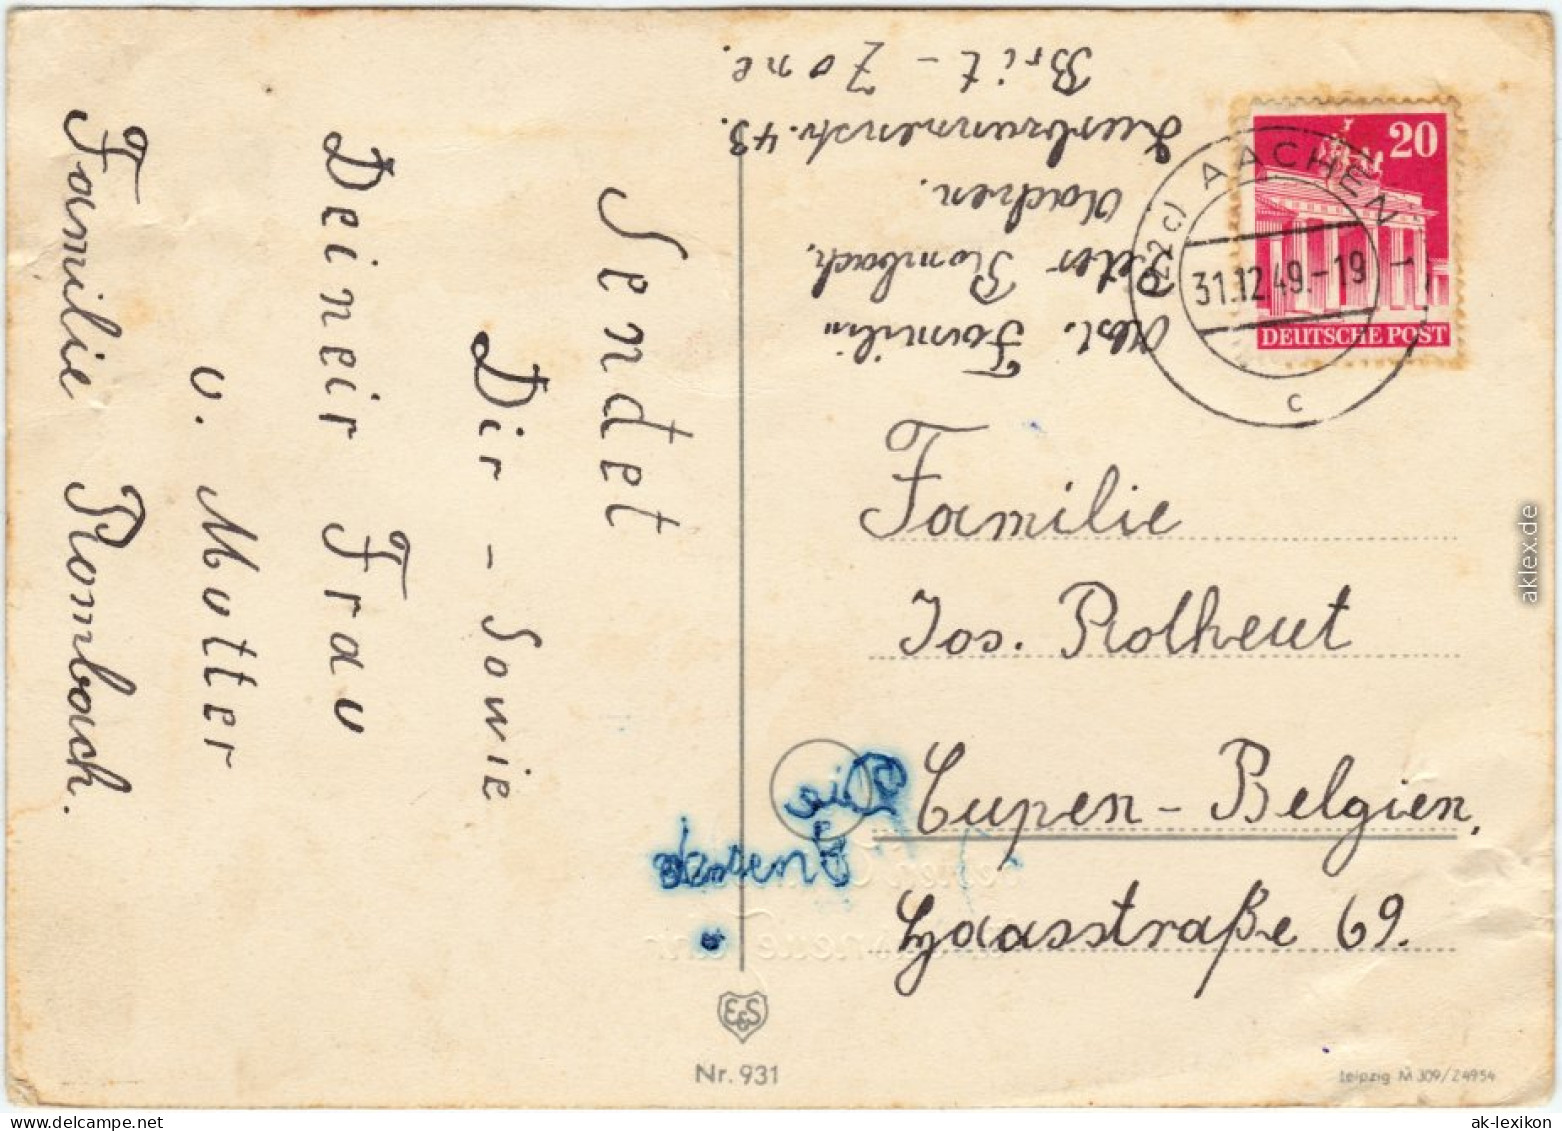 Sendet
Dir - Sowie
Deineir Frau
u. Mutter
Familie Rombach.
Abs. Familie
Peter Rombach,
Aachen.
43.
Brit - Zone.
20
DEUTSCHE POST
(22c) AACHEN
31.12.49.-19
c
Familie
Jos. Rotheut
Eupen - Belgien,
Haasstraße 69.
E&S
Nr. 931
Leipzig M 309/Z 4954
aklex.de
ak-lexikon.com